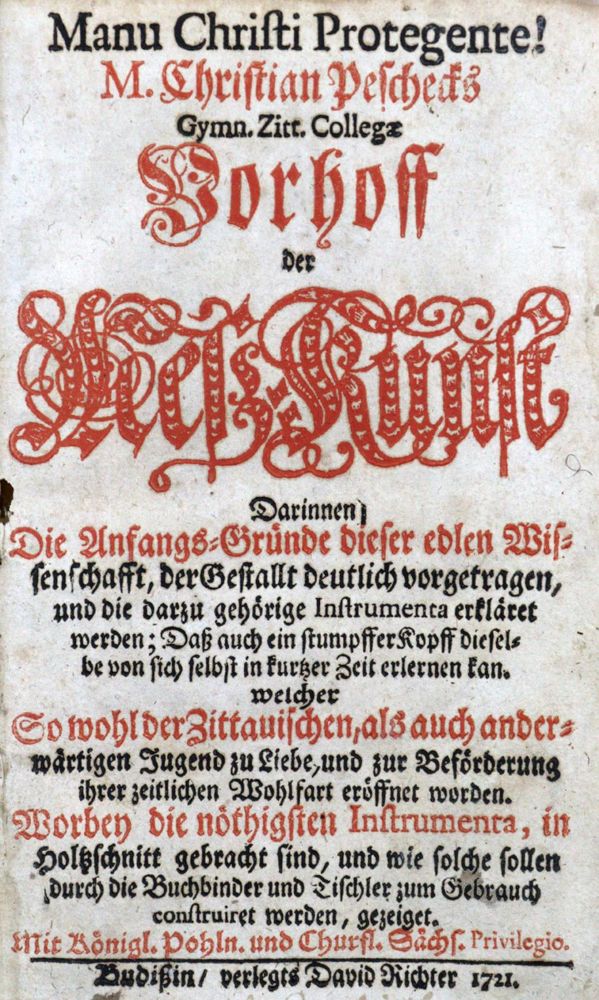 Manu Chriſti Protegente!
M. Chriſtian Peſchecks
Gymn. Zitt. Collegæ
Vorhoff
der
Meſz-Kunſt
Darinnen/
Die Anfangs-Gründe dieſer edlen Wiſ-
ſenſchafft, der Geſtallt deutlich vorgetragen,
und die darzu gehörige Inſtrumenta erkläret
werden; Daß auch ein ſtumpffer Kopff dieſel-
be von ſich ſelbſt in kurtzer Zeit erlernen kan.
welcher
So wohl der Zittauiſchen, als auch ander-
wärtigen Jugend zu Liebe, und zur Beförderung
ihrer zeitlichen Wohlfart eröffnet worden.
Worbey die nöthigſten Inſtrumenta, in
Holtzſchnitt gebracht ſind, und wie ſolche ſollen
durch die Buchbinder und Tiſchler zum Gebrauch
conſtruiret werden, gezeiget.
Mit Königl. Pohln. und Churfl. Sächſ. Privilegio.
Budißin/ verlegts David Richter 1721.